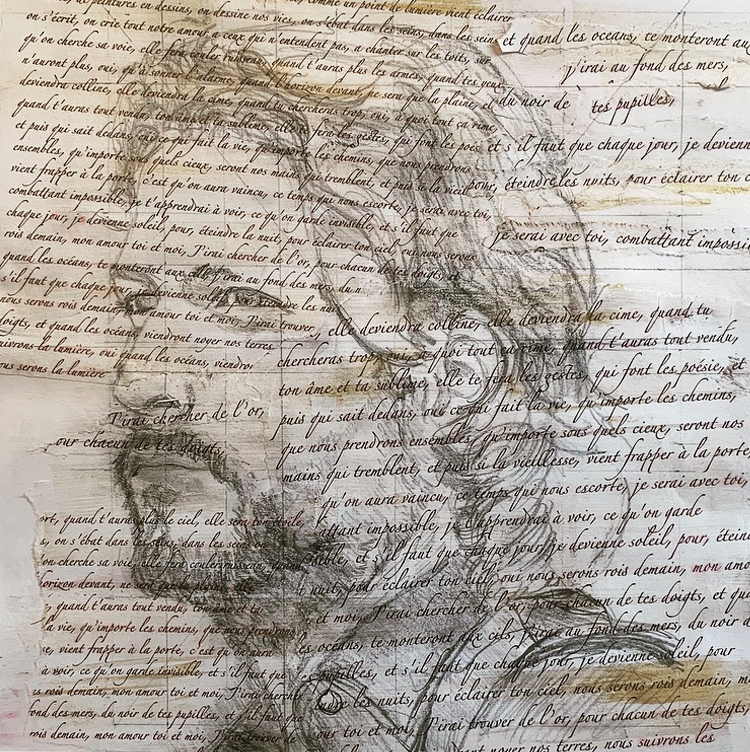 de peintures en dessins, on dessine nos vies, comme un point de lumière vient éclairer
on s'écrit, on crie tout notre amour a ceux qui n'entendent pas, a chanter sur les toits, sur
qu'on cherche sa voie, elle fera couler ruisseau, quand t'auras plus les armes, quand tes yeux
n'auront plus, oui, qu'à sonner l'alarme, quand l'horizon devant, ne sera que la plaine, et
deviendra colline, elle deviendra la cime, quand tu chercheras trop, oui, à quoi tout ça rime,
quand t'auras tout vendu, ton âme et ta sublime, elle te fera les gestes, qui font les poésie
et puis qui sait dedans, oui ce qui fait la vie, qu'importe les chemins, que nous prendrons
ensembles, qu'importe sous quels cieux, seront nos mains qui tremblent, et puis si la vieillesse
vient frapper à la porte, c'est qu'on aura vaincu, ce temps qui nous escorte, je serai avec toi,
combattant impossible, je t'apprendrai à voir, ce qu'on garde invisible, et s'il faut que
chaque jour, je devienne soleil, pour, éteindre la nuit, pour éclairer ton ciel, oui nous serons
rois demain, mon amour toi et moi, J'irai chercher de l'or, pour chacun de tes doigts, et
quand les océans, te monteront aux cils, j'irai au fond des mers, du n
s'il faut que chaque jour, je devienne soleil, pour éteindre les nuits
nous serons rois demain, mon amour toi et moi, J'irai trouver,
doigts, et quand les océans, viendront noyer nos terres
suivrons la lumière, oui quand les océans, viendront
ous serons la lumière
et quand les oceans, ce monteront aux
j'irai au fond des mers,
du noir de tes pupilles,
et s'il faut que chaque jour, je devienne
pour, éteindre les nuits, pour éclairer ton c
je serai avec toi, combattant impossi
elle deviendra colline, elle deviendra la cime, quand tu
chercheras trop, oui, à quoi tout ça rime, quand t'auras tout vendu,
ton âme et ta sublime, elle te fera les gestes, qui font les poésie, et
puis qui sait dedans, oui ce qui fait la vie, qu'importe les chemins,
que nous prendrons ensembles, qu'importe sous quels cieux, seront nos
mains qui tremblent, et puis si la vieillesse, vient frapper à la porte,
qu'on aura vaincu, ce temps qui nous escorte, je serai avec toi,
attant impossible, je t'apprendrai à voir, ce qu'on garde
isible, et s'il faut que chaque jour, je devienne soleil, pour, étein
nuit, pour éclairer ton ciel, oui nous serons rois demain, mon amo
et moi, J'irai chercher de l'or, pour chacun de tes doigts, et qu
les océans, te monteront aux cils, j'irai au fond des mers, du noir d
pupilles, et s'il faut que chaque jour, je devienne soleil, pour
les nuits, pour éclairer ton ciel, nous serons rois demain, m
our toi et moi, J'irai trouver de l'or, pour chacun de tes doigts,
nt noyer nos terres, nous suivrons les
J'irai chercher de l'or,
our chacun de tes doigts,
ort, quand t'auras plus le ciel, elle sera ton étoile,
s, on s'ébat dans les seins, dans les seins
on cherche sa voie, elle fera
horizon devant, ne sera que la plaine,
quand t'auras tout vendu, ton âme et ta
la vie, qu'importe les chemins, que nous prendrons
se, vient frapper à la porte, c'est qu'on aura
à voir, ce qu'on garde invisible, et s'il faut que
s rois demain, mon amour toi et moi, J'irai chercher
fond des mers, du noir de tes pupilles, et s'il faut que
rois demain, mon amour toi et moi,